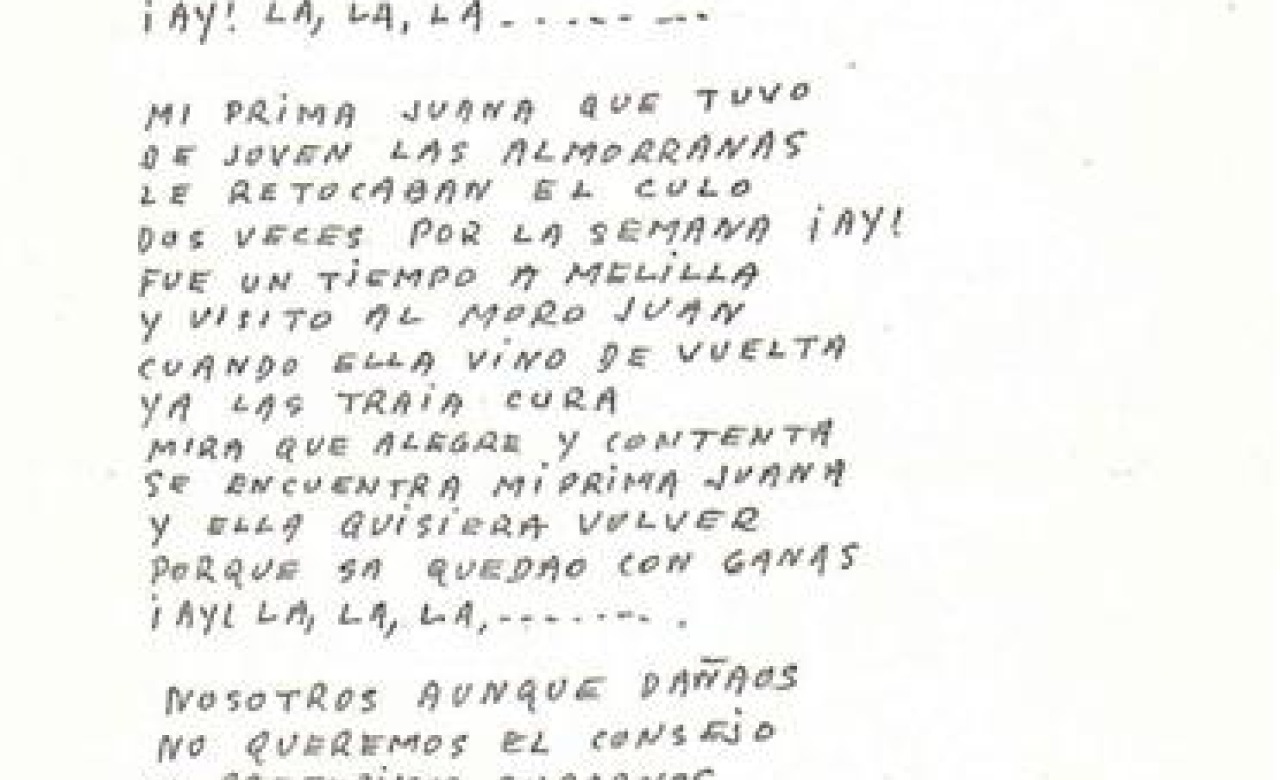 ¡AY! LA, LA, LA - . - . - - - - -
MI PRiMA JUANA QUE TUVO
DE JOVEN LAS ALMORRANAS
LE RETOCABAN EL CULO
DOS VECES POR LA SEMANA ¡AY!
FUE UN TiEMPO A MELiLLA
Y VISITO AL MORO JUAN
CUANDO ELLA ViNO DE VUELTA
YA LAS TRAiA CURA
MIRA QUE ALEGRE Y CONTENTA
SE ENCUENTRA Mi PRiMA JUANA
Y ELLA QUiSiERA VOLVER
PORQUE SA QUEDAO CON GANAS
¡AY! LA, LA, LA, - - - . - . - - .
NOSOTROS AUNQUE DAÑAOS
NO QUEREMOS EL CONSEJO